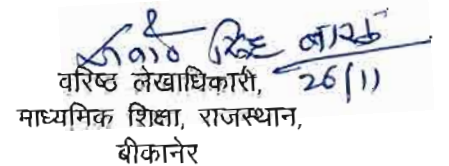 सिंह
26/11
वरिष्ठ लेखाधिकारी,
माध्यमिक शिक्षा, राजस्थान,
बीकानेर